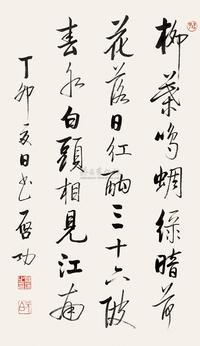 柳葉鳴蜩綠暗荷
花落日紅酣三十六陂
春水白頭相見江南
丁卯夏日书启功